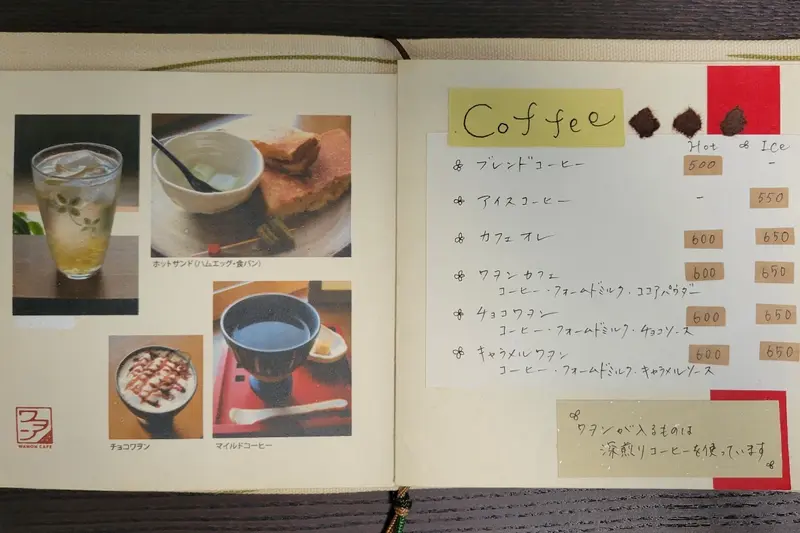 ホットサンド(ハムエッグ・食パン)
チョコワタン
マイルドコーヒー
ワタン
WANON CAFE
Coffee
Hot Ice
ブレンドコーヒー 500 -
アイスコーヒー - 550
カフェオレ 600 650
ワタンカフェ 600 650
コーヒー・フォームドミルク・ココアパウダー
チョコワタン 600 650
コーヒー・フォームドミルク・チョコソース
キャラメルワタン 600 650
コーヒー・フォームドミルク・キャラメルソース
ワタンが入るものは
深煎りコーヒーを使っています